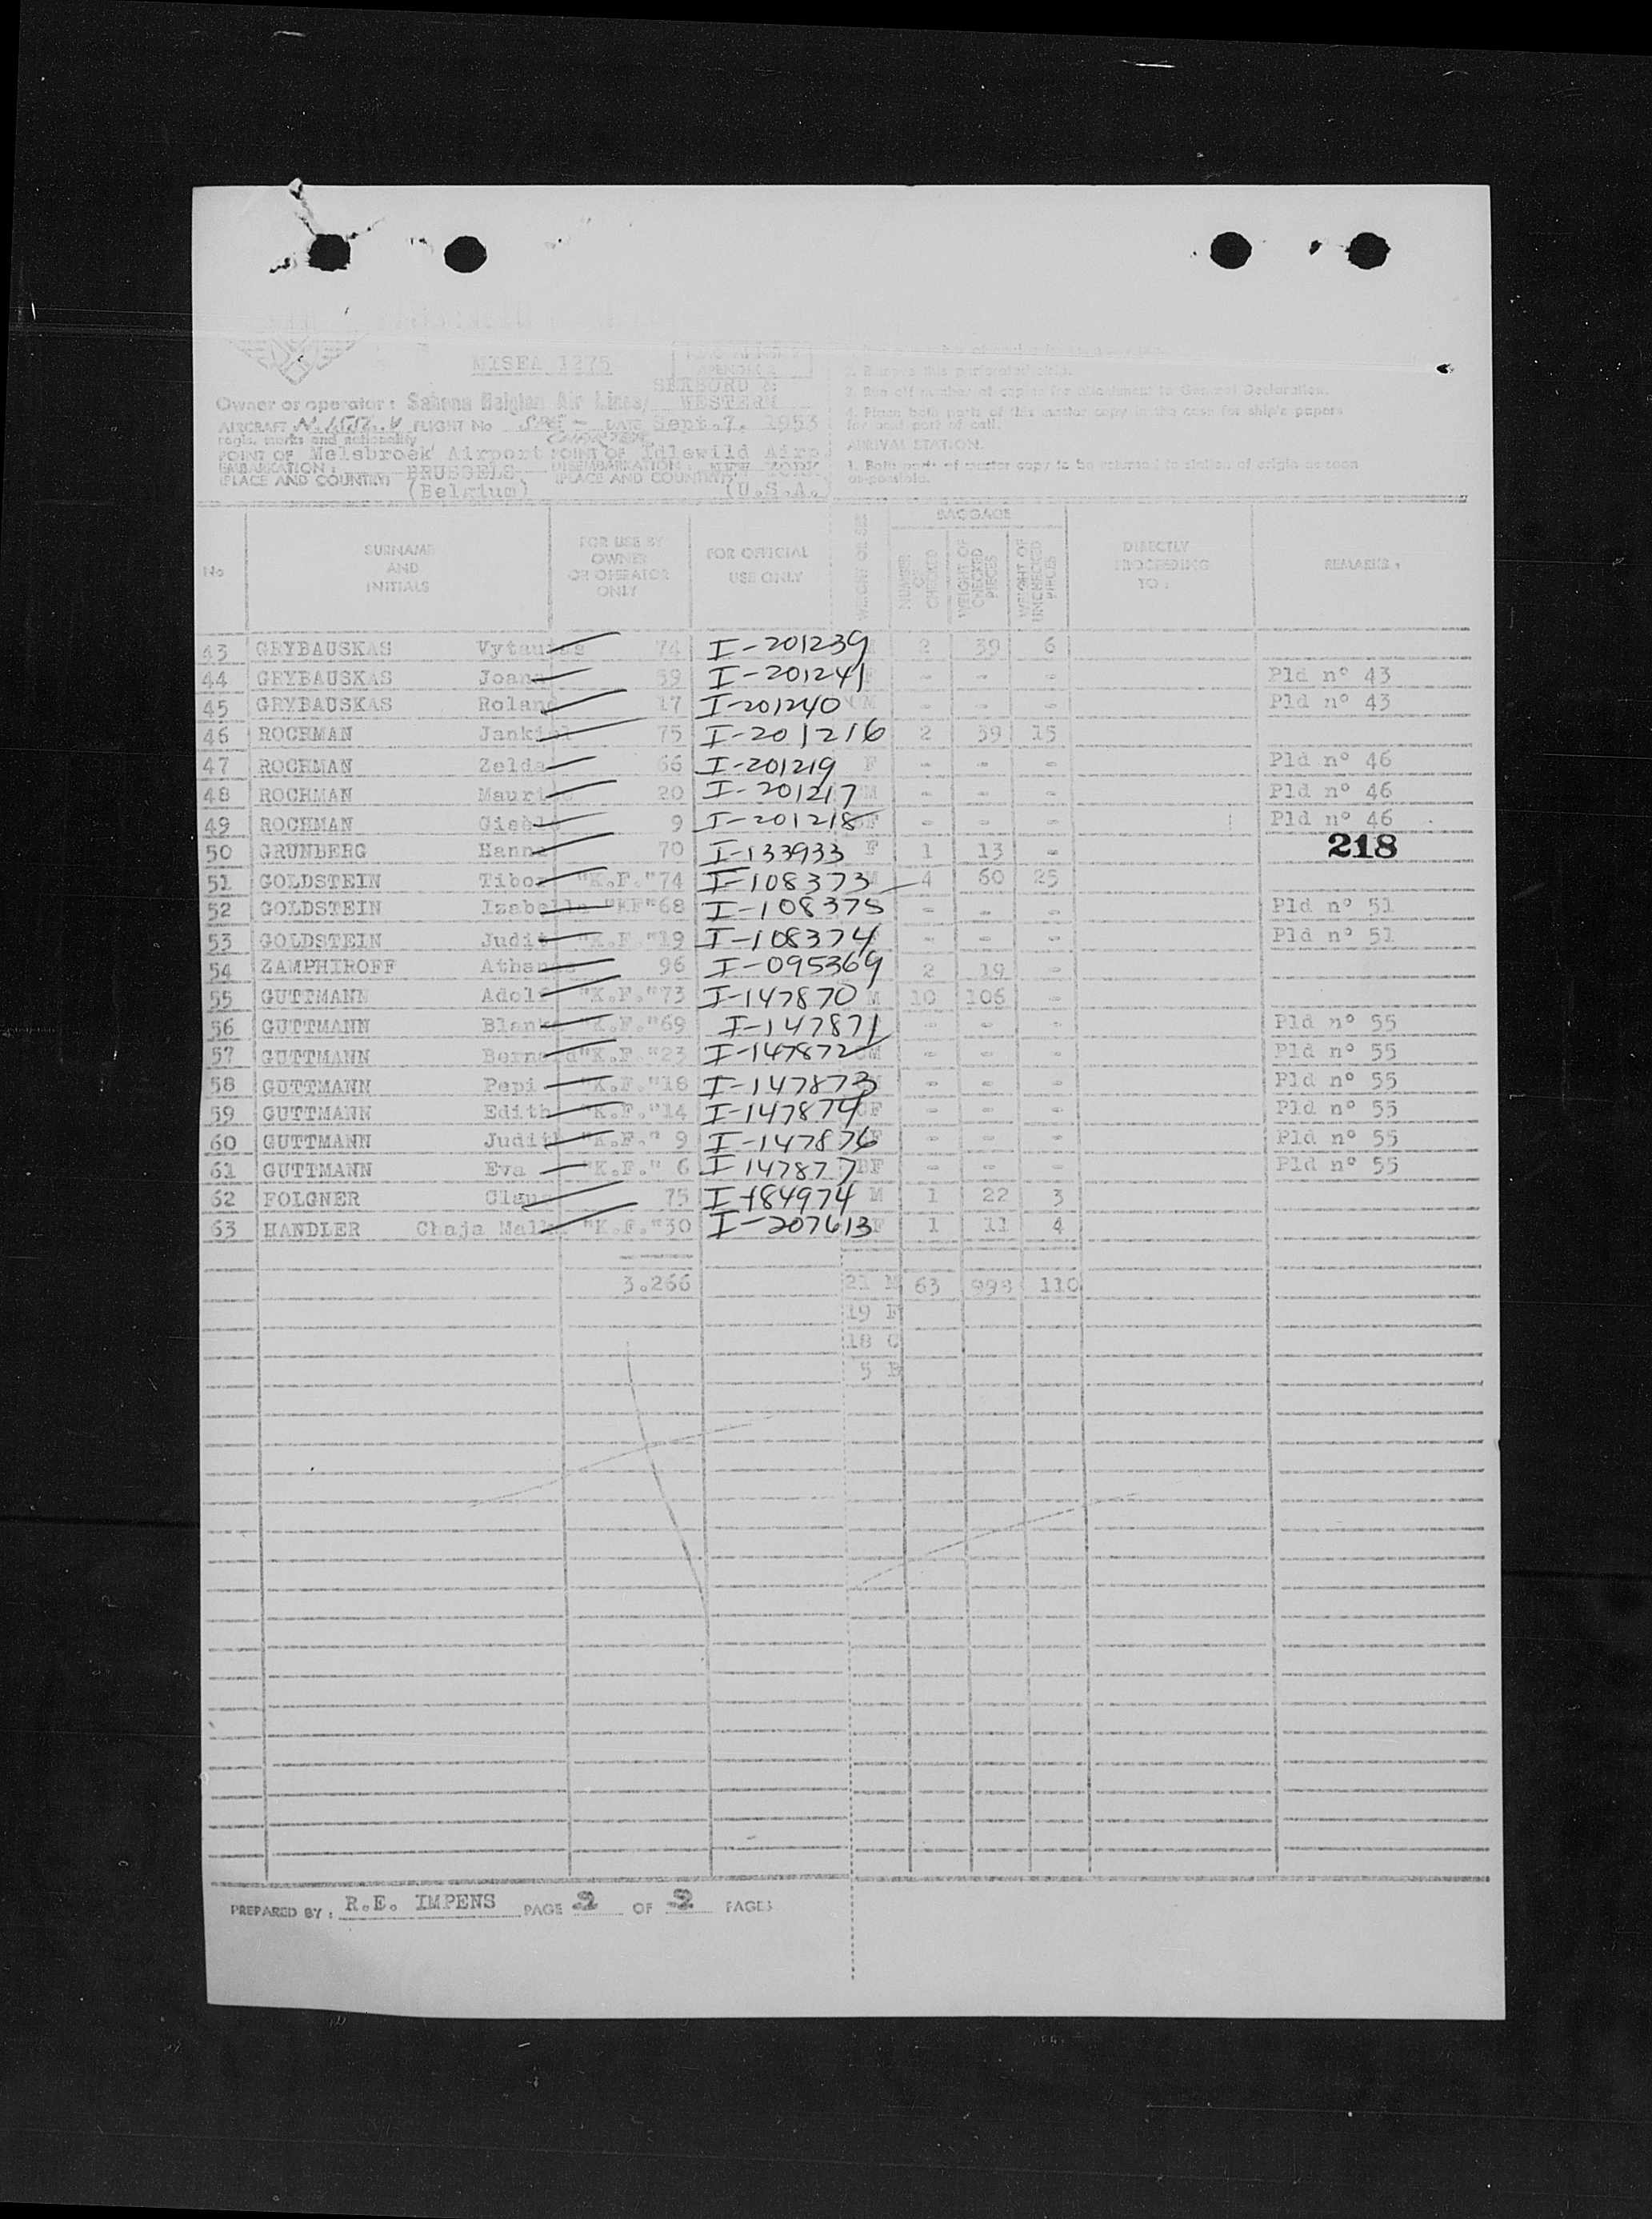 MISEA 1275
SEABORD &
Owner or operator: Sabena Belgian Air Lines/ WESTERN
AIRCRAFT FLIGHT No DATE Sept.7. 1953
regis. marks and nationality CHARTER
POINT OF Melsbroek Airport POINT OF Idlewild Airp.
EMBARKATION: BRUSSELS DISEMBARKATION: NEW YORK
(PLACE AND COUNTRY) (Belgium) (PLACE AND COUNTRY) (U.S.A.)
2. Remove this perforated slip.
3. Run off number of copies for attachment to General Declaration.
4. Place both parts of this master copy in the case for ship's papers
for next port of call.
ARRIVAL STATION.
1. Both parts of master copy to be returned to station of origin as soon
as possible.
No SURNAME AND INITIALS FOR USE BY OWNER OR OPERATOR ONLY FOR OFFICIAL USE ONLY BAGGAGE NUMBER OF CHECKED WEIGHT OF CHECKED PIECES WEIGHT OF UNCHECKED PIECES DIRECTLY PROCEEDING TO: REMARKS:
43 GRYBAUSKAS Vytautas 74 I-201239 M 2 39 6
44 GRYBAUSKAS Joana 59 I-201241 F - - - Pld n° 43
45 GRYBAUSKAS Roland 17 I-201240 M - - - Pld n° 43
46 ROCHMAN Jankiel 75 I-201216 2 39 15
47 ROCHMAN Zelda 66 I-201219 F - - - Pld n° 46
48 ROCHMAN Maurice 20 I-201217 M - - - Pld n° 46
49 ROCHMAN Gisèle 9 I-201218 F - - - Pld n° 46
50 GRUNBERG Hanna 70 I-133933 F 1 13 - 218
51 GOLDSTEIN Tibor "K.F." 74 I-108373 M 4 60 25
52 GOLDSTEIN Izabella "KF" 68 I-108375 - - - Pld n° 51
53 GOLDSTEIN Judit "K.F." 19 I-108374 - - - Pld n° 51
54 ZAMPHIROFF Athanas 96 I-095369 2 19 -
55 GUTTMANN Adolf "K.F." 73 I-147870 M 10 106 -
56 GUTTMANN Blanka "K.F." 69 I-147871 - - - Pld n° 55
57 GUTTMANN Bernard "K.F." 23 I-147872 CM - - - Pld n° 55
58 GUTTMANN Pepi "K.F." 18 I-147873 - - - Pld n° 55
59 GUTTMANN Edith "K.F." 14 I-147874 CF - - - Pld n° 55
60 GUTTMANN Judith "K.F." 9 I-147876 F - - - Pld n° 55
61 GUTTMANN Eva "K.F." 6 I-147877 BF - - - Pld n° 55
62 FOLGNER Claus 75 I-184974 M 1 22 3
63 HANDLER Chaja Malka "K.F." 30 I-207613 F 1 11 4
3.266 21 M 63 998 110
19 F
18 C
5 B
PREPARED BY: R.E. IMPENS PAGE 2 OF 2 PAGES